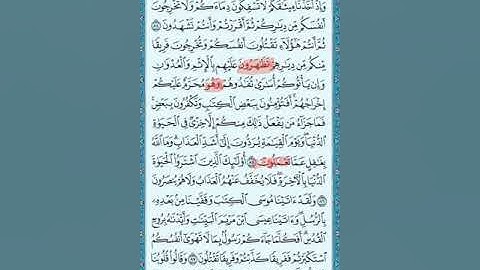 وَإِذْ أَخَذْنَا مِيثَٰقَكُمْ لَا تَسْفِكُونَ دِمَآءَكُمْ وَلَا تُخْرِجُونَ
أَنفُسَكُم مِّن دِيَٰرِكُمْ ثُمَّ أَقْرَرْتُمْ وَأَنتُمْ تَشْهَدُونَ
ثُمَّ أَنتُمْ هَٰٓؤُلَآءِ تَقْتُلُونَ أَنفُسَكُمْ وَتُخْرِجُونَ فَرِيقًا
مِّنكُم مِّن دِيَٰرِهِمْ تَظَّٰهَرُونَ عَلَيْهِم بِٱلْإِثْمِ وَٱلْعُدْوَٰنِ
وَإِن يَأْتُوكُمْ أُسَٰرَىٰ تُفَٰدُوهُمْ وَهْوَ مُحَرَّمٌ عَلَيْكُمْ
إِخْرَاجُهُمْ أَفَتُؤْمِنُونَ بِبَعْضِ ٱلْكِتَٰبِ وَتَكْفُرُونَ بِبَعْضٍ
فَمَا جَزَآءُ مَن يَفْعَلُ ذَٰلِكَ مِنكُمْ إِلَّا خِزْىٌ فِى ٱلْحَيَوٰةِ
ٱلدُّنْيَا وَيَوْمَ ٱلْقِيَٰمَةِ يُرَدُّونَ إِلَىٰٓ أَشَدِّ ٱلْعَذَابِ وَمَا ٱللَّهُ
بِغَٰفِلٍ عَمَّا تَعْمَلُونَ أُو۟لَٰٓئِكَ ٱلَّذِينَ ٱشْتَرَوُا۟ ٱلْحَيَوٰةَ
ٱلدُّنْيَا بِٱلْءَاخِرَةِ فَلَا يُخَفَّفُ عَنْهُمُ ٱلْعَذَابُ وَلَا هُمْ يُنصَرُونَ
وَلَقَدْ ءَاتَيْنَا مُوسَى ٱلْكِتَٰبَ وَقَفَّيْنَا مِنۢ بَعْدِهِۦ
بِٱلرُّسُلِ وَءَاتَيْنَا عِيسَى ٱبْنَ مَرْيَمَ ٱلْبَيِّنَٰتِ وَأَيَّدْنَٰهُ بِرُوحِ
ٱلْقُدُسِ أَفَكُلَّمَا جَآءَكُمْ رَسُولٌۢ بِمَا لَا تَهْوَىٰٓ أَنفُسُكُمُ
ٱسْتَكْبَرْتُمْ فَفَرِيقًا كَذَّبْتُمْ وَفَرِيقًا تَقْتُلُونَ وَقَالُوا۟ قُلُوبُنَا